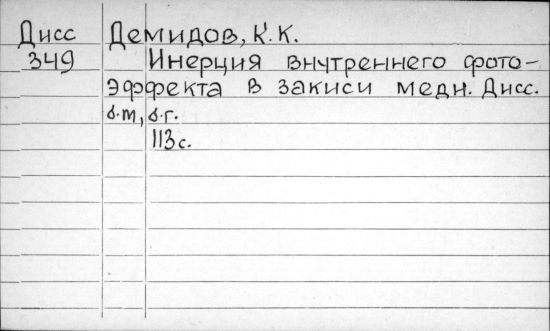 Дисс Демидов, К.К.
349 Инерция внутреннего фото-
эффекта в закиси меди. Дисс.
б.m, б.г.
113с.